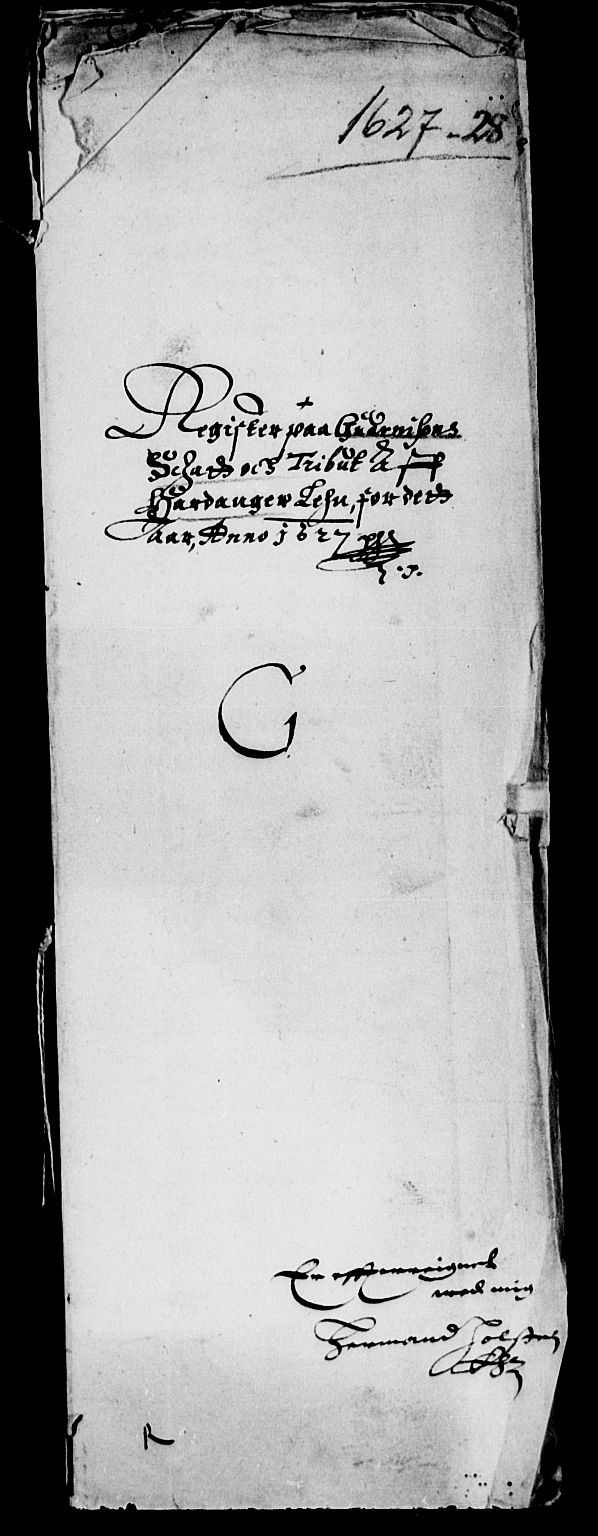 1627-28
Register paa Guarnisons
Schatt och Tribut Aff
Hardanger Lehn, for dett
Aar, Anno 1627
G
Er effterreignet
med mig
Hermand Holsten
R